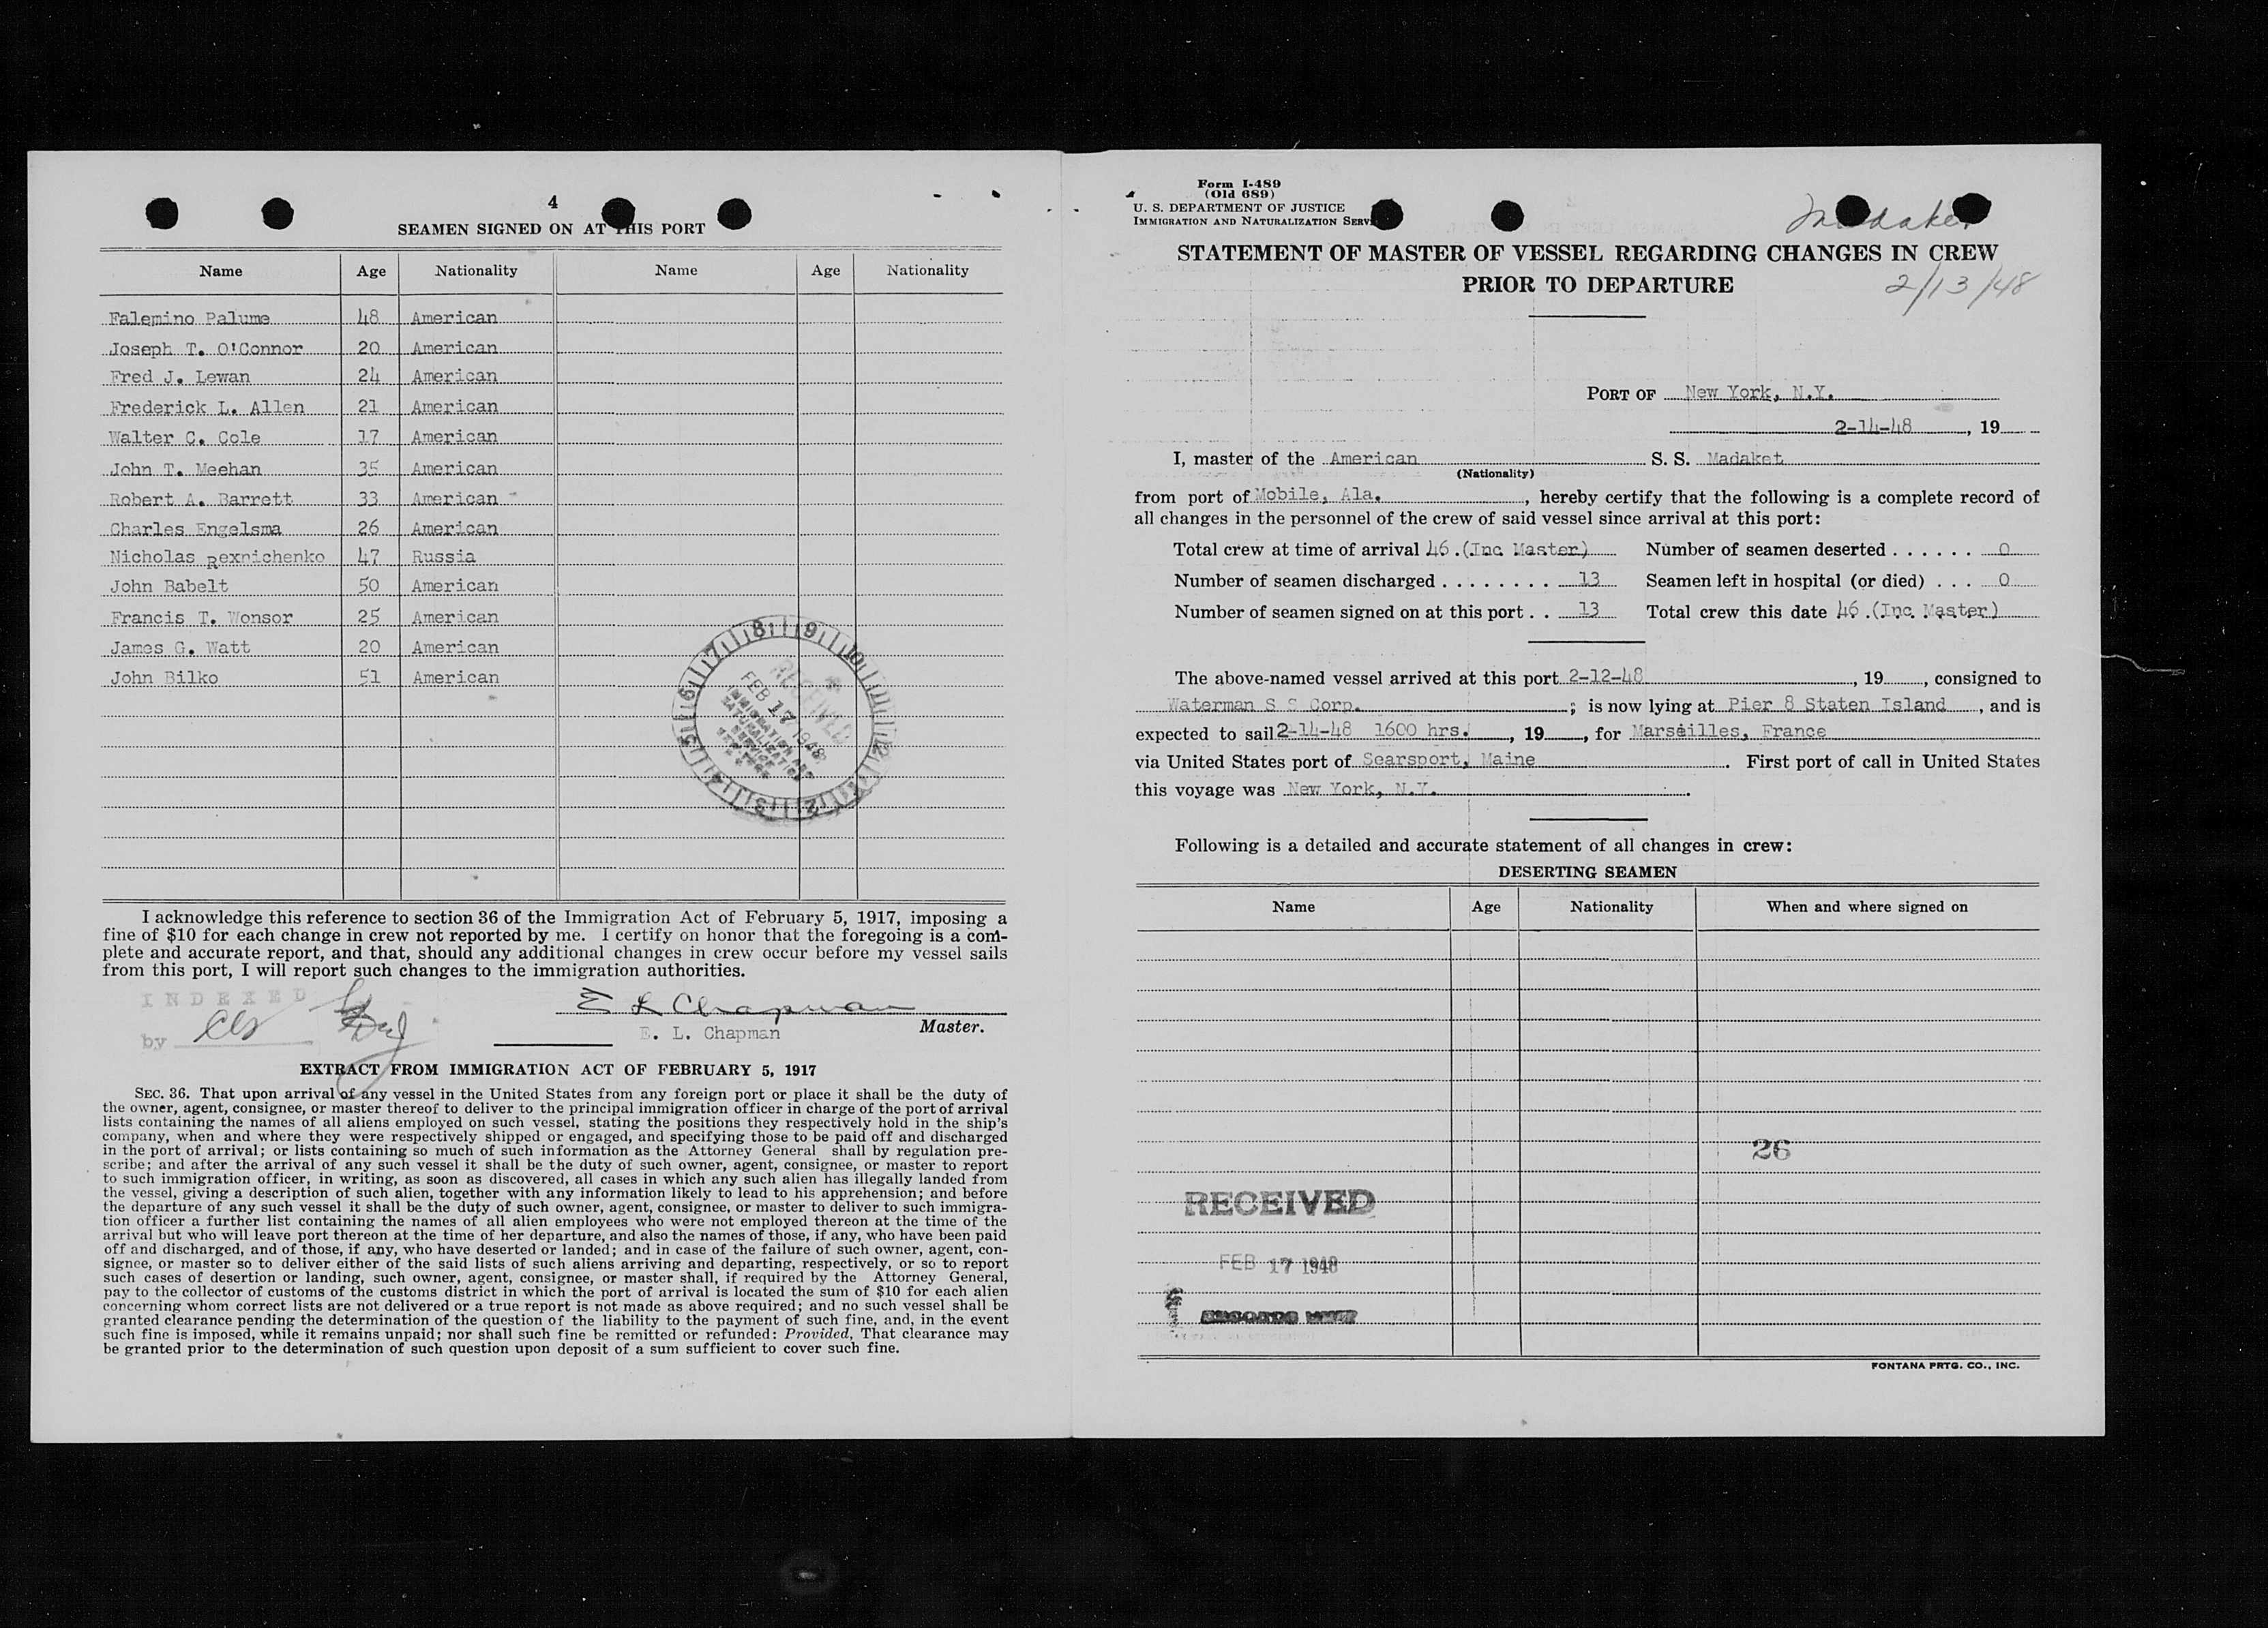 4
SEAMEN SIGNED ON AT THIS PORT
Name Age Nationality Name Age Nationality
Falemino Palume 48 American
Joseph T. O'Connor 20 American
Fred J. Lewan 24 American
Frederick L. Allen 21 American
Walter C. Cole 17 American
John T. Meehan 35 American
Robert A. Barrett 33 American
Charles Engelsma 26 American
Nicholas Rexnichenko 47 Russia
John Babelt 50 American
Francis T. Wonsor 25 American
James G. Watt 20 American
John Bilko 51 American
RECEIVED
FEB 17 1948
IMMIGRATION AND
NATURALIZATION
SERVICE
I acknowledge this reference to section 36 of the Immigration Act of February 5, 1917, imposing a
fine of $10 for each change in crew not reported by me. I certify on honor that the foregoing is a com-
plete and accurate report, and that, should any additional changes in crew occur before my vessel sails
from this port, I will report such changes to the immigration authorities.
INDEXED
by
E L Chapman
E. L. Chapman Master.
EXTRACT FROM IMMIGRATION ACT OF FEBRUARY 5, 1917
SEC. 36. That upon arrival of any vessel in the United States from any foreign port or place it shall be the duty of
the owner, agent, consignee, or master thereof to deliver to the principal immigration officer in charge of the port of arrival
lists containing the names of all aliens employed on such vessel, stating the positions they respectively hold in the ship's
company, when and where they were respectively shipped or engaged, and specifying those to be paid off and discharged
in the port of arrival; or lists containing so much of such information as the Attorney General shall by regulation pre-
scribe; and after the arrival of any such vessel it shall be the duty of such owner, agent, consignee, or master to report
to such immigration officer, in writing, as soon as discovered, all cases in which any such alien has illegally landed from
the vessel, giving a description of such alien, together with any information likely to lead to his apprehension; and before
the departure of any such vessel it shall be the duty of such owner, agent, consignee, or master to deliver to such immigra-
tion officer a further list containing the names of all alien employees who were not employed thereon at the time of the
arrival but who will leave port thereon at the time of her departure, and also the names of those, if any, who have been paid
off and discharged, and of those, if any, who have deserted or landed; and in case of the failure of such owner, agent, con-
signee, or master so to deliver either of the said lists of such aliens arriving and departing, respectively, or so to report
such cases of desertion or landing, such owner, agent, consignee, or master shall, if required by the Attorney General,
pay to the collector of customs of the customs district in which the port of arrival is located the sum of $10 for each alien
concerning whom correct lists are not delivered or a true report is not made as above required; and no such vessel shall be
granted clearance pending the determination of the question of the liability to the payment of such fine, and, in the event
such fine is imposed, while it remains unpaid; nor shall such fine be remitted or refunded: Provided, That clearance may
be granted prior to the determination of such question upon deposit of a sum sufficient to cover such fine.
Form I-489
(Old 689)
U. S. DEPARTMENT OF JUSTICE
IMMIGRATION AND NATURALIZATION SERV
Madaket
STATEMENT OF MASTER OF VESSEL REGARDING CHANGES IN CREW
PRIOR TO DEPARTURE
2/13/48
PORT OF New York, N.Y.
2-14-48, 19
I, master of the American S. S. Madaket
(Nationality)
from port of Mobile, Ala., hereby certify that the following is a complete record of
all changes in the personnel of the crew of said vessel since arrival at this port:
Total crew at time of arrival 46.(Inc Master) Number of seamen deserted ...... 0
Number of seamen discharged ........ 13 Seamen left in hospital (or died) ... 0
Number of seamen signed on at this port .. 13 Total crew this date 46.(Inc. Master)
The above-named vessel arrived at this port 2-12-48, 19, consigned to
Waterman S S Corp.; is now lying at Pier 8 Staten Island, and is
expected to sail 2-14-48 1600 hrs., 19, for Marseilles, France
via United States port of Searsport, Maine. First port of call in United States
this voyage was New York, N.Y..
Following is a detailed and accurate statement of all changes in crew:
DESERTING SEAMEN
Name Age Nationality When and where signed on
26
RECEIVED
FEB 17 1948
FONTANA PRTG. CO., INC.